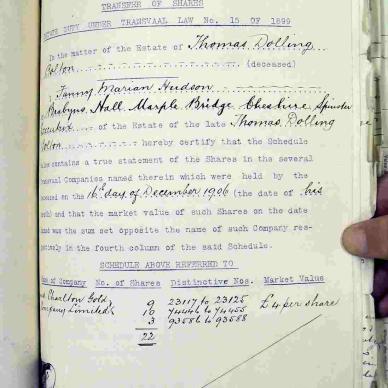 TRANSFER OF SHARES
DUTY UNDER TRANSVAAL LAW No. 15 OF 1899
In the matter of the Estate of Thomas Dolling
Bolton (deceased)
I, Fanny Marian Hudson
Hall Marple Bridge Cheshire Spinster
of the Estate of the late Thomas Dolling
Bolton hereby certify that the Schedule
contains a true statement of the Shares in the several
Companies named therein which were held by the
on the 16th day of December 1906 (the date of his
and that the market value of such Shares on the date
was the sum set opposite the name of such Company res-
in the fourth column of the said Schedule.
SCHEDULE ABOVE REFERRED TO
of Company No. of Shares Distinctive Nos. Market Value
Charlton Gold 9 23117 to 23125 £4 per share
Company Limited 10 74446 to 74455
3 93586 to 93588
22